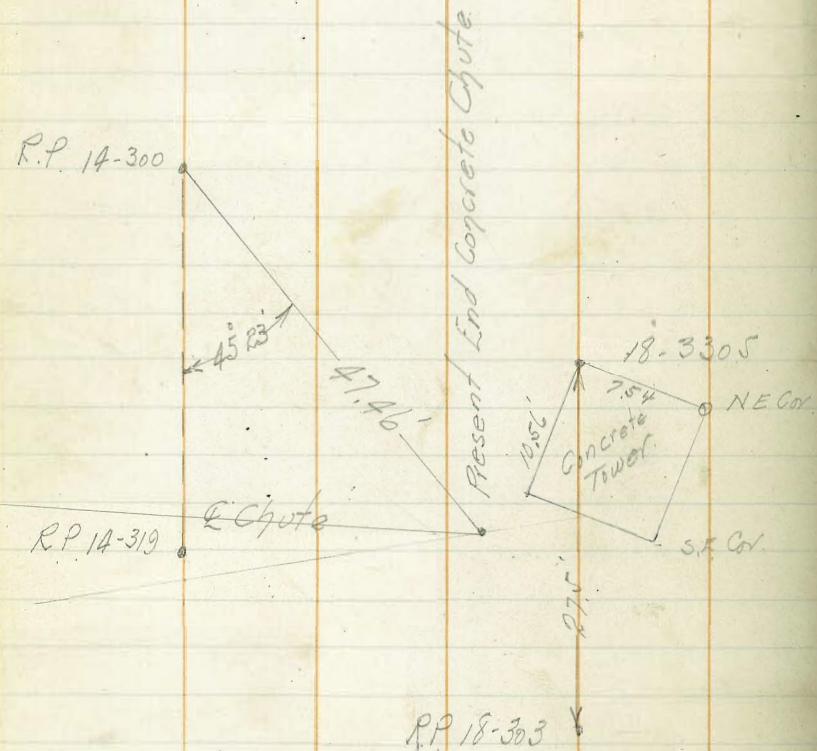 R.P. 14-300
45° 23'
47.46'
Present End Concrete Chute
18-3305
7.54
N E Cor.
10.56'
Concrete
Tower.
℄ Chute
RP 14-319
S.E Cor.
27.5'
RP 18-303